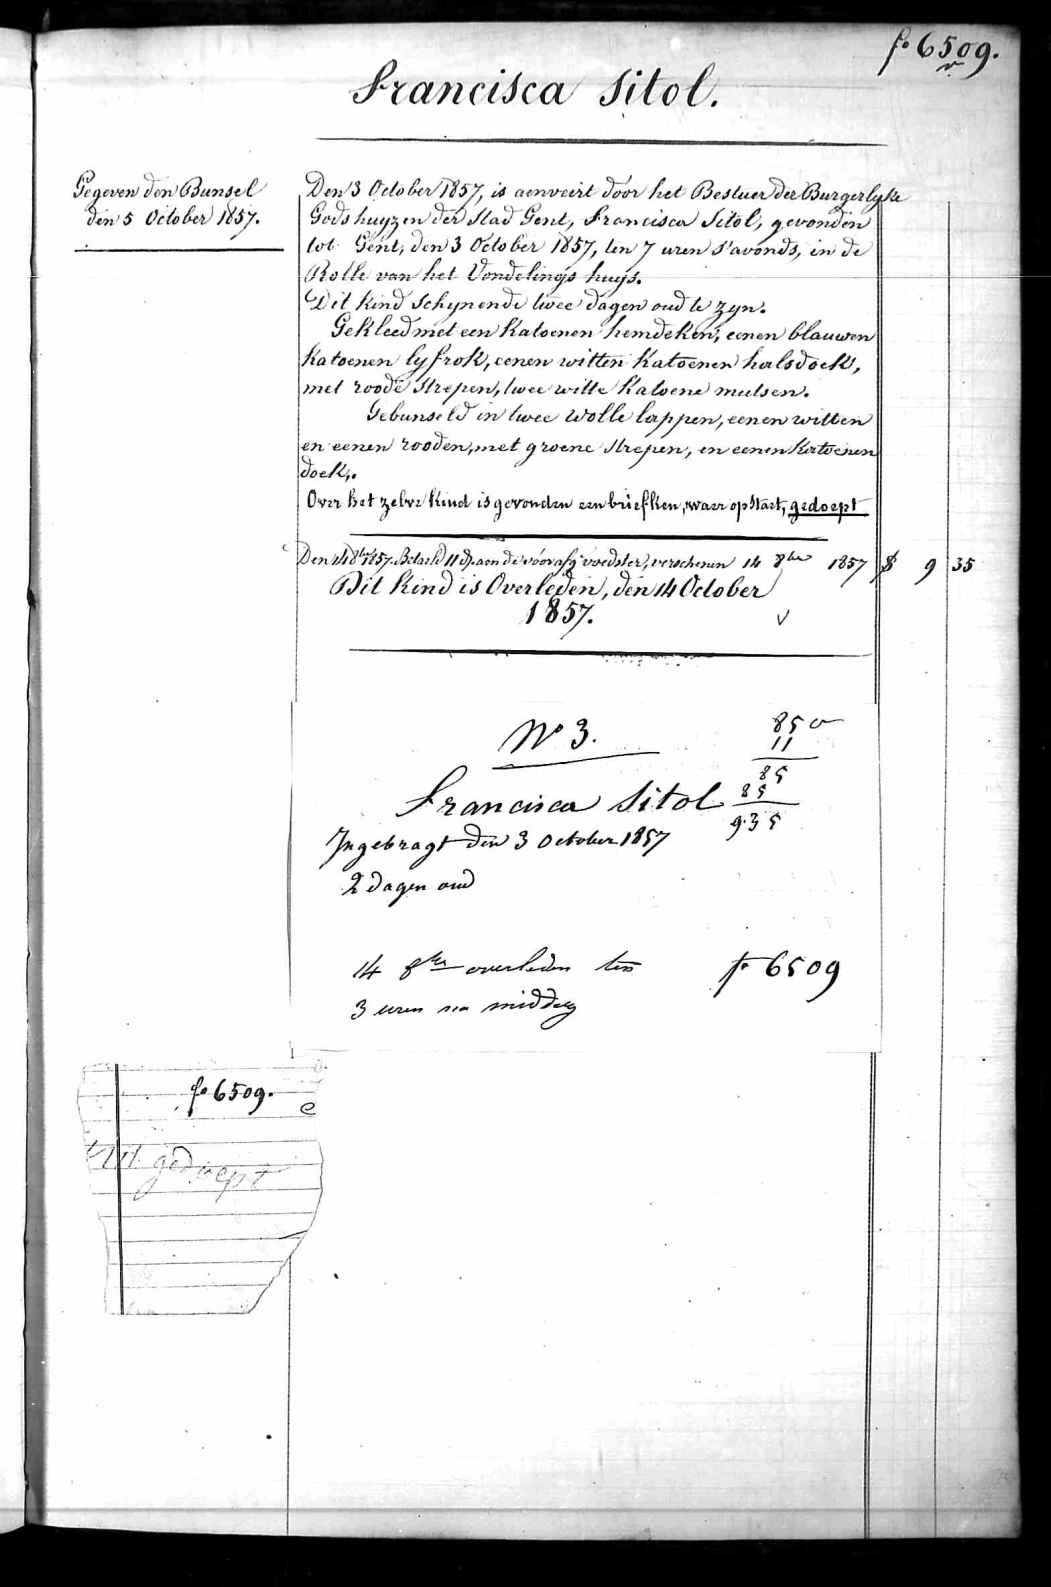 fo 6509.
v.
Francisca Sitol.
Gegeven den Bunsel
den 5 October 1857.
Den 3 October 1857, is aenveirt door het Bestuer der Burgerlyke
Gods huyzen der Stad Gent, Francisca Sitol, gevonden
tot Gent, den 3 October 1857, ten 7 uren s'avonds, in de
Rolle van het Vondelings huys.
Dit kind schynende twee dagen oud te zyn.
Gekleed met een katoenen hemdeken, eenen blauwen
katoenen lyfrok, eenen witten katoenen halsdoek,
met roode strepen, twee witte katoene mutsen.
Gebunseld in twee wolle lappen, eenen witten
en eenen rooden, met groene strepen, en eenen katoenen
doek,.
Over het zelve kind is gevonden een briefken, waer op staet, gedoept
Den 14 8bre 1857. Betaeld 11 d. aen de voedster, verschenen 14 8bre 1857 $ 9 35
Dit kind is Overleden, den 14 October
1857.
No 3.
85
11
85
85
9.35
Francisca Sitol
Ingebragt den 3 October 1857
2 dagen oud
14 8bre overleden ten
3 uren na middag
fo 6509
fo 6509.
e
gedoept